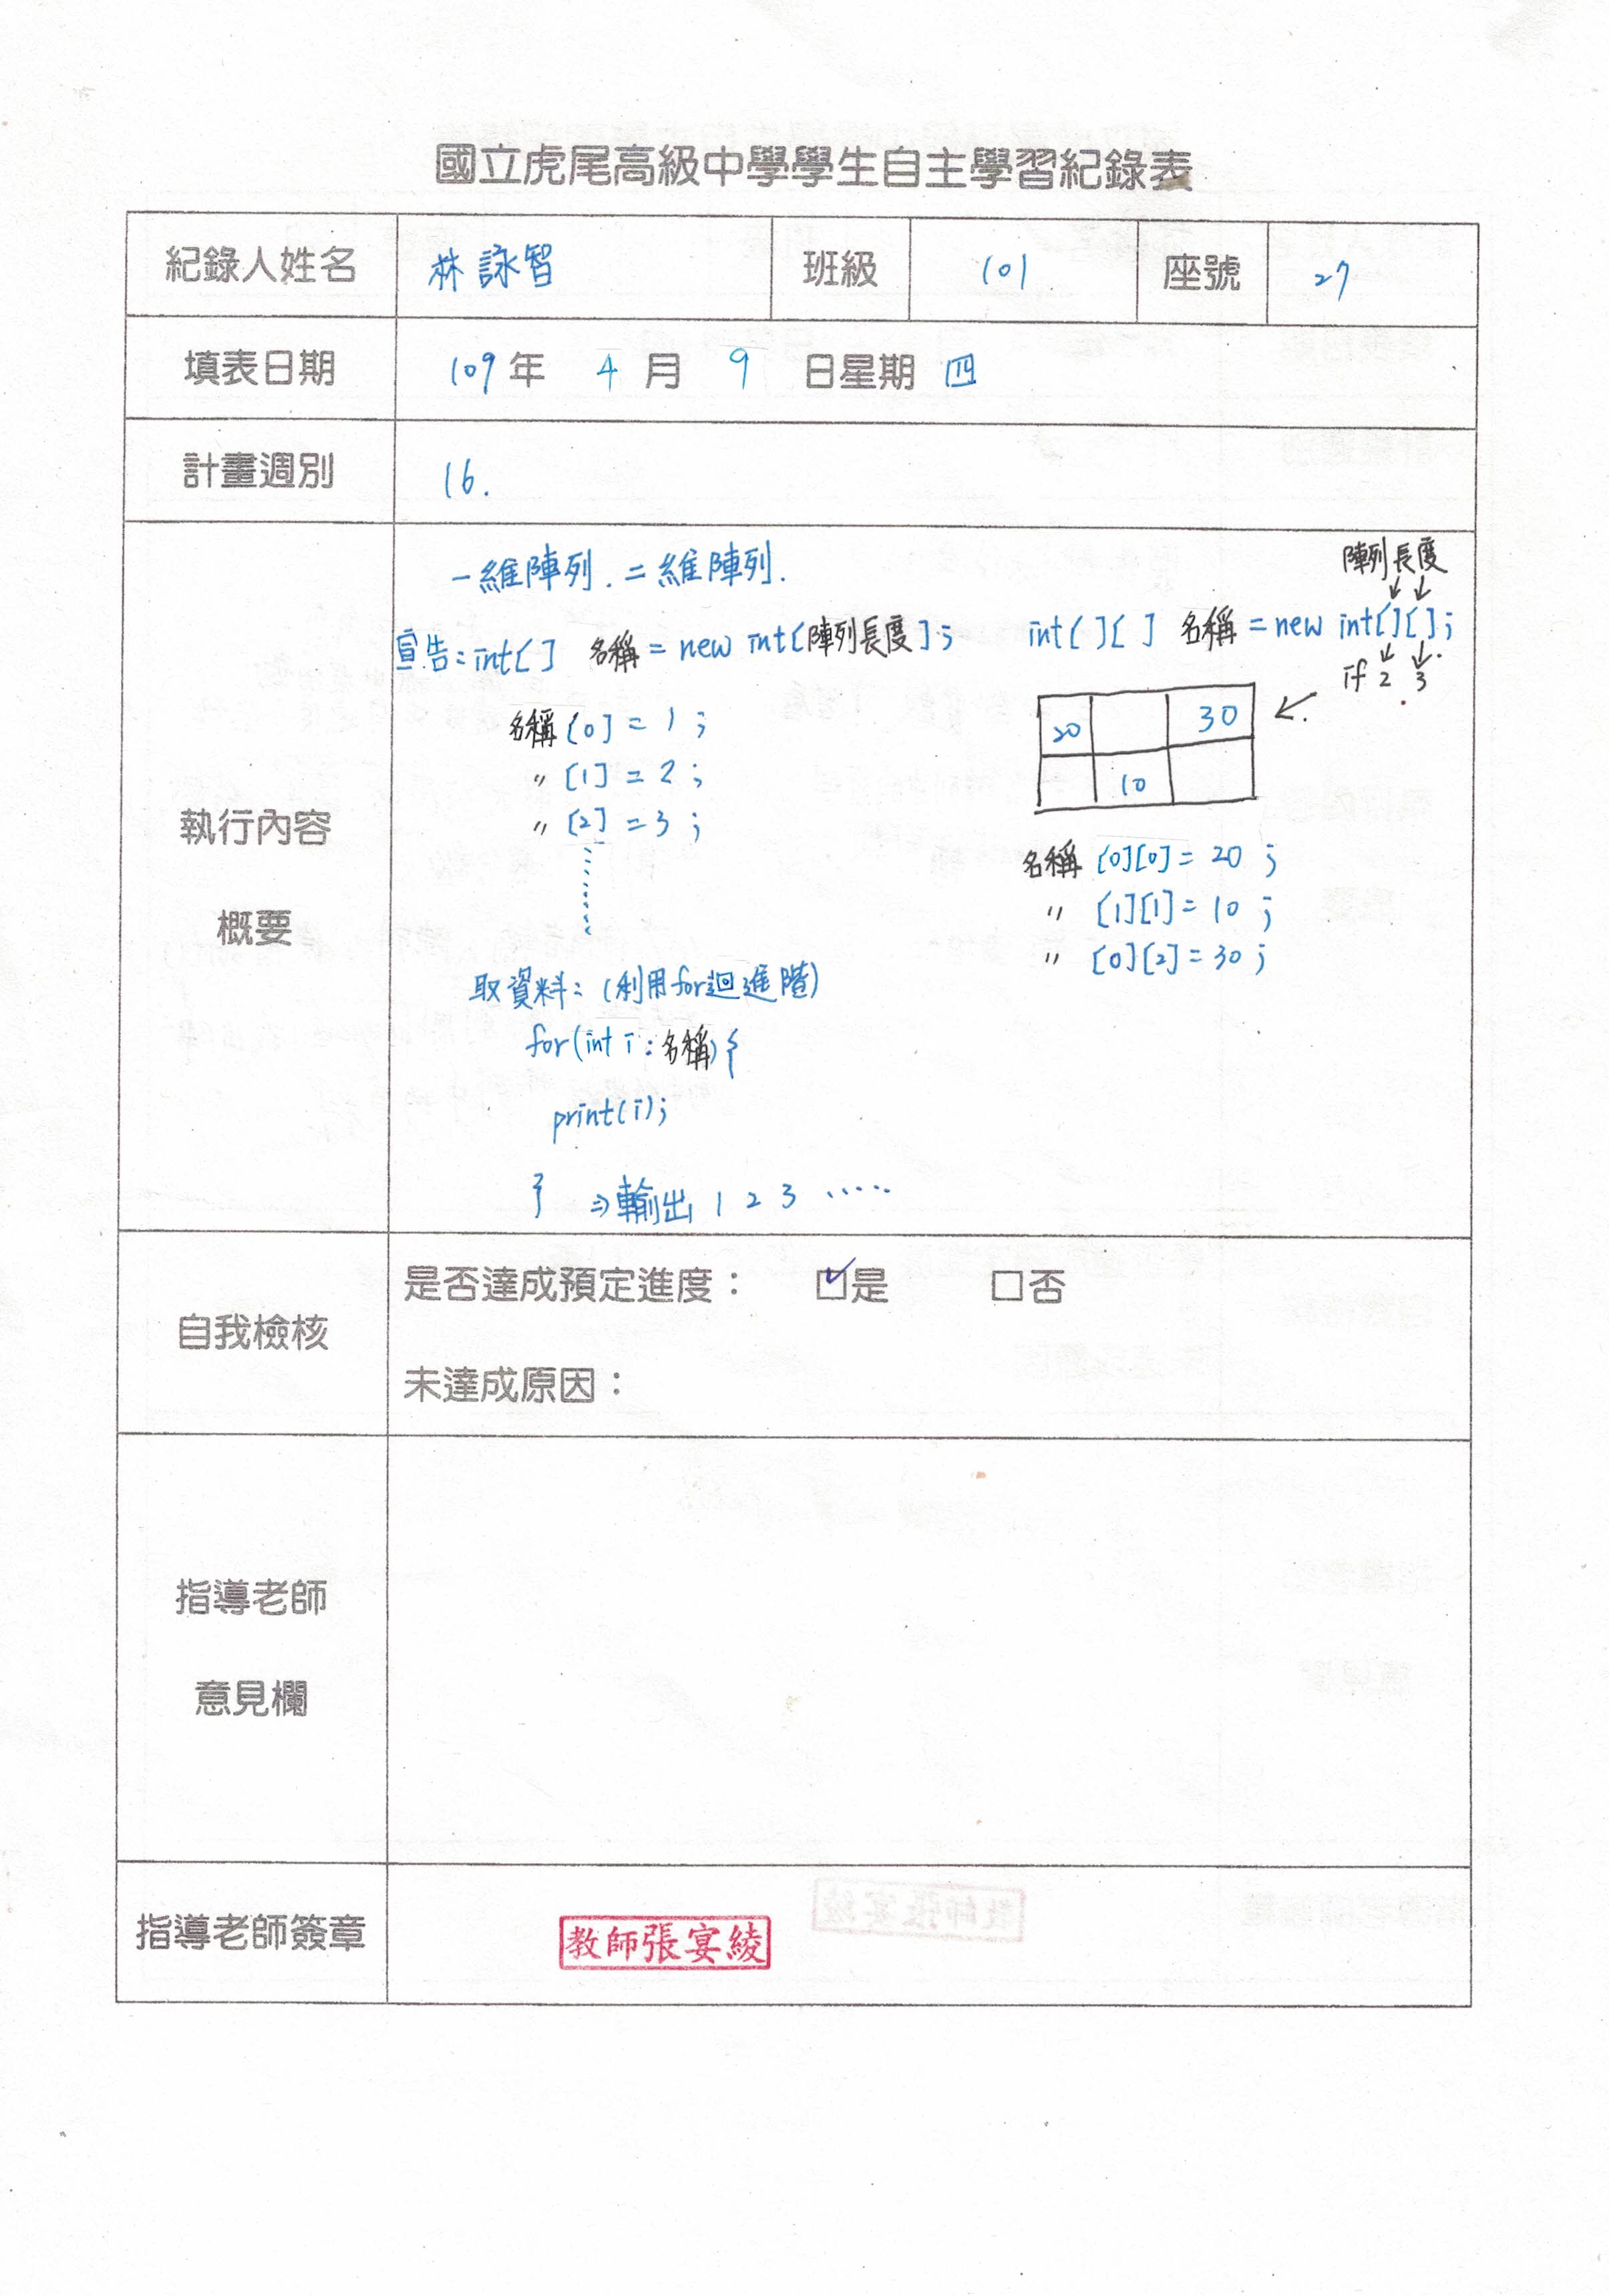 國立虎尾高級中學學生自主學習紀錄表
紀錄人姓名 林詠智 班級 101 座號 27
填表日期 109年 4月 9日星期四
計畫週別 16.
執行內容
概要
一維陣列.二維陣列.
宣告:int[] 名稱=new int[陣列長度];
名稱[0]=1;
〃[1]=2;
〃[2]=3;
取資料:(利用for迴進階)
for(int i:名稱){
print(i);
}⇒輸出 1 2 3 .....
陣列長度
int[][] 名稱=new int[][];
if 2 3
20 30
10
名稱[0][0]=20;
〃[1][1]=10;
〃[0][2]=30;
自我檢核
是否達成預定進度: ☑是 □否
未達成原因:
指導老師
意見欄
指導老師簽章 教師張宴綾